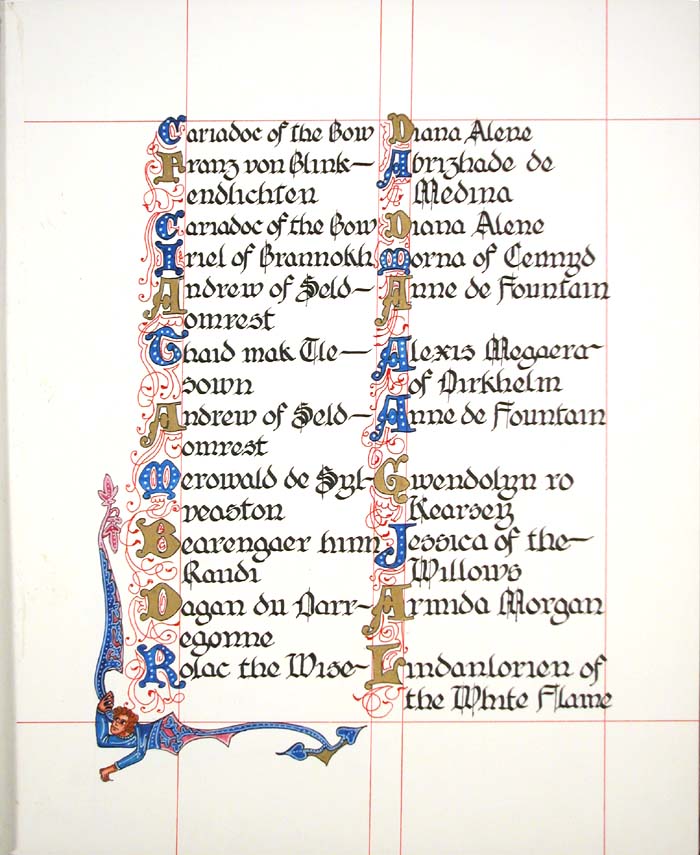 Cariadoc of the Bow
Franz von Blink—
endlichten
Cariadoc of the Bow
Iriel of Brannokh
Andrew of Seld—
omrest
Thaid mak Tle—
sown
Andrew of Seld—
omrest
Merowald de Syl-
veaston
Bearengaer hinn
Raudi
Dagan du Darr-
egonne
Rolac the Wise
Diana Alene
Abrizhade de
Medina
Diana Alene
Morna of Cennyd
Anne de Fountain
Alexis Megaera
of Dirkhelm
Anne de Fountain
Gwendolyn ro
Kearsey
Jessica of the—
Willows
Arinda Morgan
Lindanlorien of
the White Flame